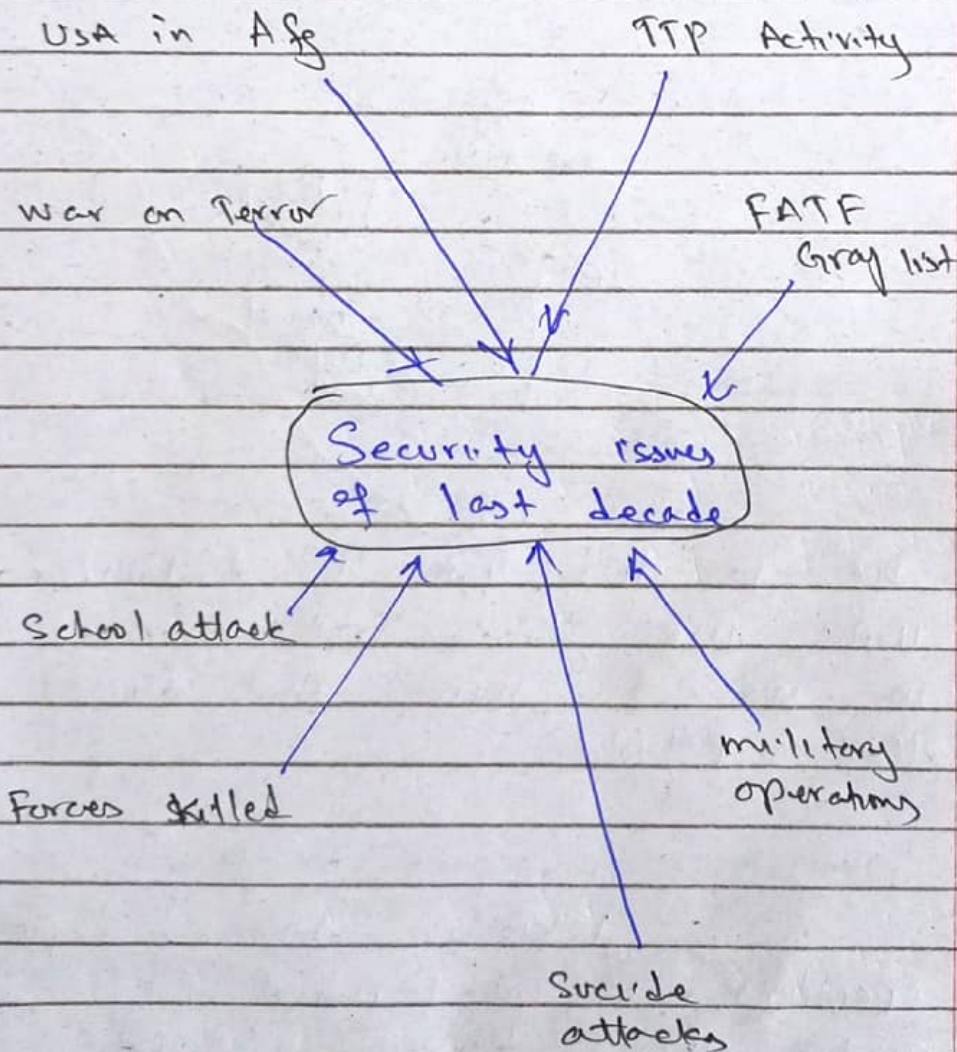 USA in Afg
TTP Activity
War on Terror
FATF
Gray list
Security issues
of last decade
School attack
military
operations
Forces killed
Sucide
attacks